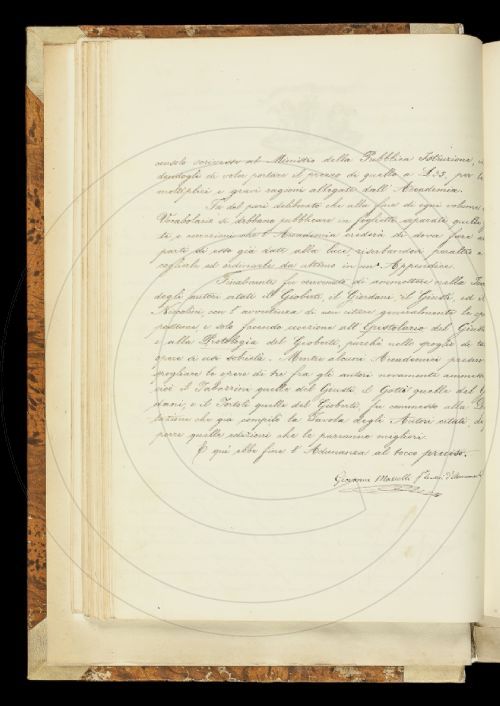 console scrivesse al Ministro della Pubblica Istruzione,
dandogli di voler portare il prezzo di quella a £33, per le
molteplici e gravi ragioni allegate dall'Accademia.
Fu del pari deliberato che alla fine di ogni volume
Vocabolario si debbano pubblicare in foglietto separato quelle
te e correzioni che l'Accademia crederà di dover fare a
parte di esso già data alla luce, riserbandosi peraltro a
coglierle ed ordinarle da ultimo in un'Appendice.
Finalmente fu convenuto di ammettere nella
degli autori citati il Gioberti, il Giordani, il Giusti, ed il
Niccolini, con l'avvertenza di non citare generalmente le
postume e solo facendo eccezione all'Epistolario del Giusti
e alla Protologia del Gioberti, purchè nello spoglio di
opere si usi sobrietà. Mentre alcuni Accademici
spogliare le opere di tre fra gli autori novamente ammessi
cioè il Tabarrini quelle del Giusti, il Gotti quelle del
dani, e il Tortoli quelle del Gioberti, fu commesso alla
tazione che già compilò la Tavola degli Autori citati,
porre quelle edizioni che le parranno migliori.
E qui ebbe fine l'Adunanza al tocco preciso.
Giovanni